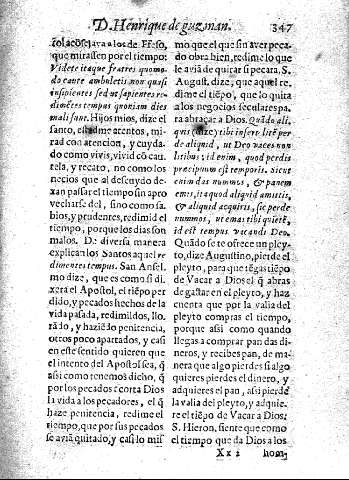 D. Henrique de guzman. 347
tol acõsejava a los de Efeso,
que mirassen por el tiempo:
Videte itaque fratres quomo-
do caute ambuletis non quasi
insipientes sed ut sapientes re-
dimẽtes tempus quoniam dies
mali sunt. Hijos mios, dize el
santo, estadme atentos, mi-
rad con atencion, y cuyda-
do como vivis, vivid cõ cau-
tela, y recato, no como los
necios que al descuydo de-
xan passar el tiempo sin apro
vecharse del, sino como sa-
bios, y prudentes, redimid el
tiempo, porque los dias son
malos. De diversa manera
explican los Santos aquel re
dimentes tempus. San Ansel-
mo dize, que es como si di-
xera el Apostol, el tiẽpo per
dido, y pecados hechos de la
vida pasada, redimildos, llo-
rãdo, y haziẽdo penitencia,
otros poco apartados, y casi
en este sentido quieren que
el intento del Apostol sea, q̃
assi como tenemos dicho, q̃
por los pecados corta Dios
la vida a los pecadores, el q̃
haze penitencia, redime el
tiempo, que por sus pecados
se avia quitado, y casi lo mis
mo que el que sin aver peca-
do obra bien, redime lo que
le aviã de quitar si pecara. S.
August. dize, que aquel re-
dime el tiẽpo, que lo quita
a los negocios seculares pa-
ra abraçar a Dios. Quãdo ali-
quis (dize) tibi infert litẽ per
de aliquid, ut Deo vaces non
litibus: id enim, quod perdis
precipium est temporis. Sicut
enim das nummos, & panem
emis, ita quod aliquid amistis,
& aliquid acquiris, sic perde
nummos, ut emas tibi quietẽ,
id est tempus vacandi Deo.
Quãdo se te ofrece un pley-
to, dize Augustino, pierde el
pleyto, para que tẽgas tiẽpo
de Vacar a Dios el q̃ abras
de gastar en el pleyto, y haz
cuenta que por la valia del
pleyto compras el tiempo,
porque assi como quando
llegas a comprar pan das di-
neros, y recibes pan, de ma-
nera que algo pierdes si algo
quieres pierdes el dinero, y
adquieres el pan, assi pierde
la valia del pleyto, y adquie-
re el tiẽpo de Vacar a Dios.
S. Hieron, siente que como
el tiempo que da Dios a los
Xx 2 hom-